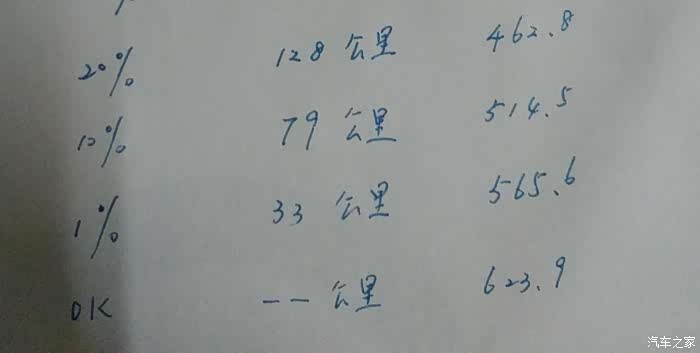 20% 128公里 462.8
10% 79公里 514.5
1% 33公里 565.6
OK --公里 623.9
汽车之家